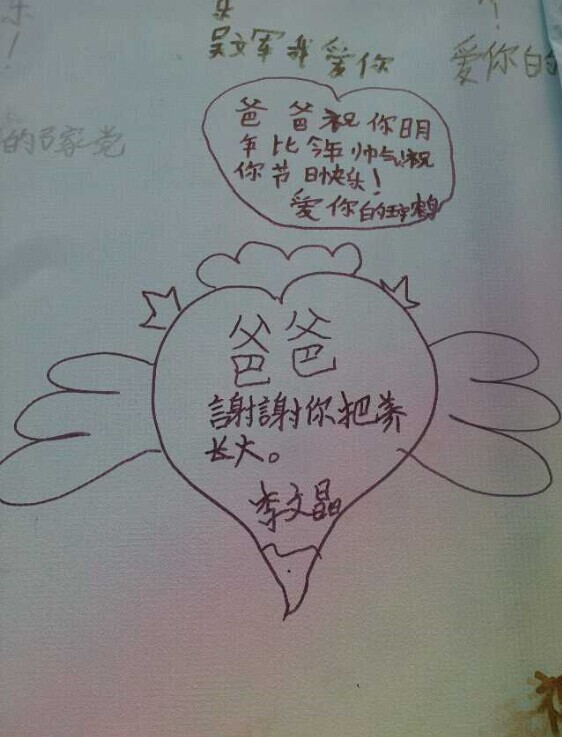 乐
！
吴文军我爱你
爱你的
的马家党
爸爸祝你明
年比今年帅气!祝
你节日快乐!
爱你的琸鹤
爸爸
謝謝你把养
长大。
李文晶